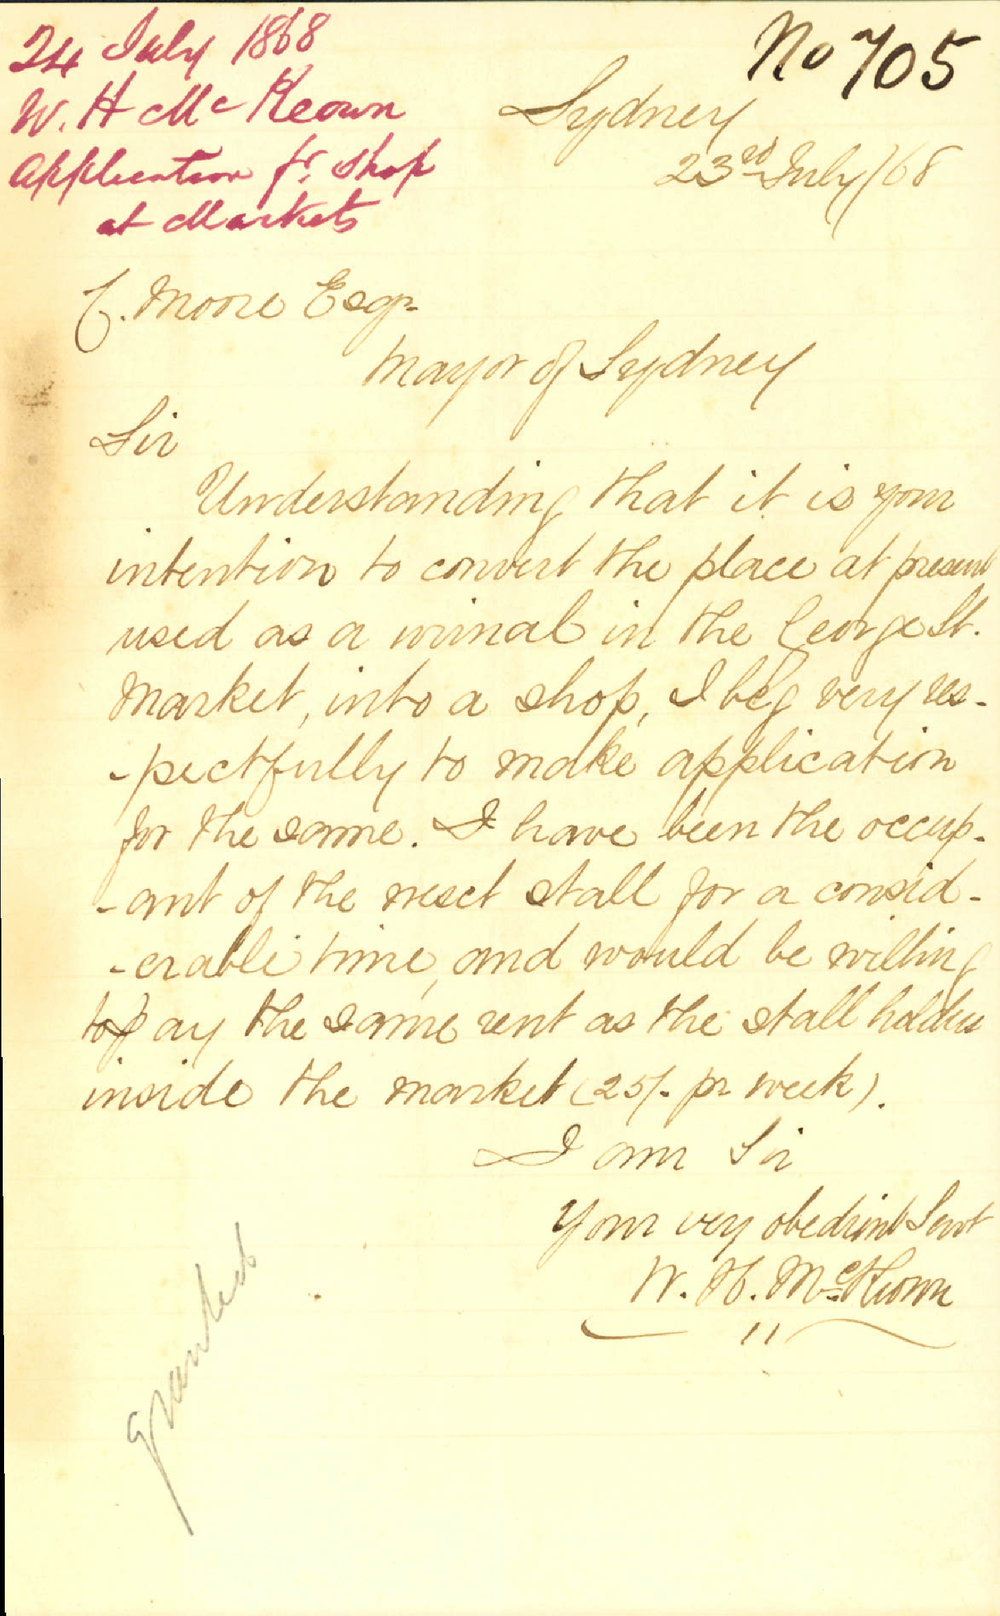 24 July 1868
W. H Mc Keown
Application fr. Shop
at Markets
No 705
Sydney
23rd July /68
C. Moore Esqr.
Mayor of Sydney
Sir
Understanding that it is your
intention to convert the place at present
used as a urinal in the George St.
Market, into a shop, I beg very res-
-pectfully to make application
for the same. I have been the occup-
-ant of the next stall for a consid-
-erable time, and would be willing
to pay the same rent as the stall holders
inside the market (25/- pr week).
I am Sir
Your very obedient Servt
W. H. McKeown
granted